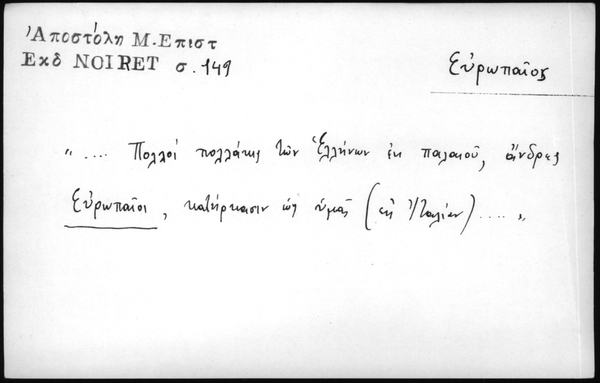 Ἀποστόλη Μ. Επιστ
Εκδ NOIRET σ. 149
Εὐρωπαῖος
" .... Πολλοί πολλάκις τῶν Ἑλλήνων ἐκ παλαιοῦ, ἄνδρες
Εὐρωπαῖοι, κατήρκασιν ὡς ὑμᾶς (εἰς Ἰταλίαν) .... "